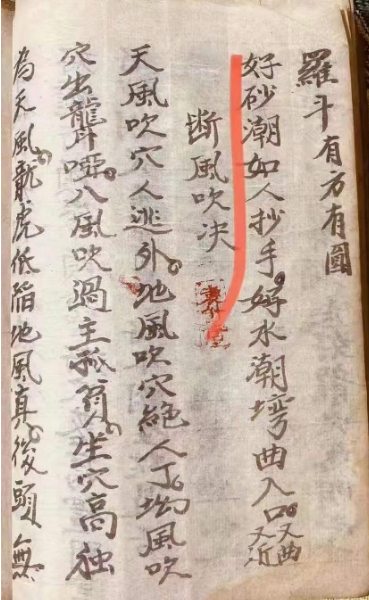 羅斗有方有圓
好砂潮如人抄手好水潮塆曲入口又曲又近
断風吹决
天風吹穴人逃外地風吹穴絕人丁坳風吹
穴出聾啞八風吹過主孤貧坐穴高独
為天風龍虎低陷地風真後頭無